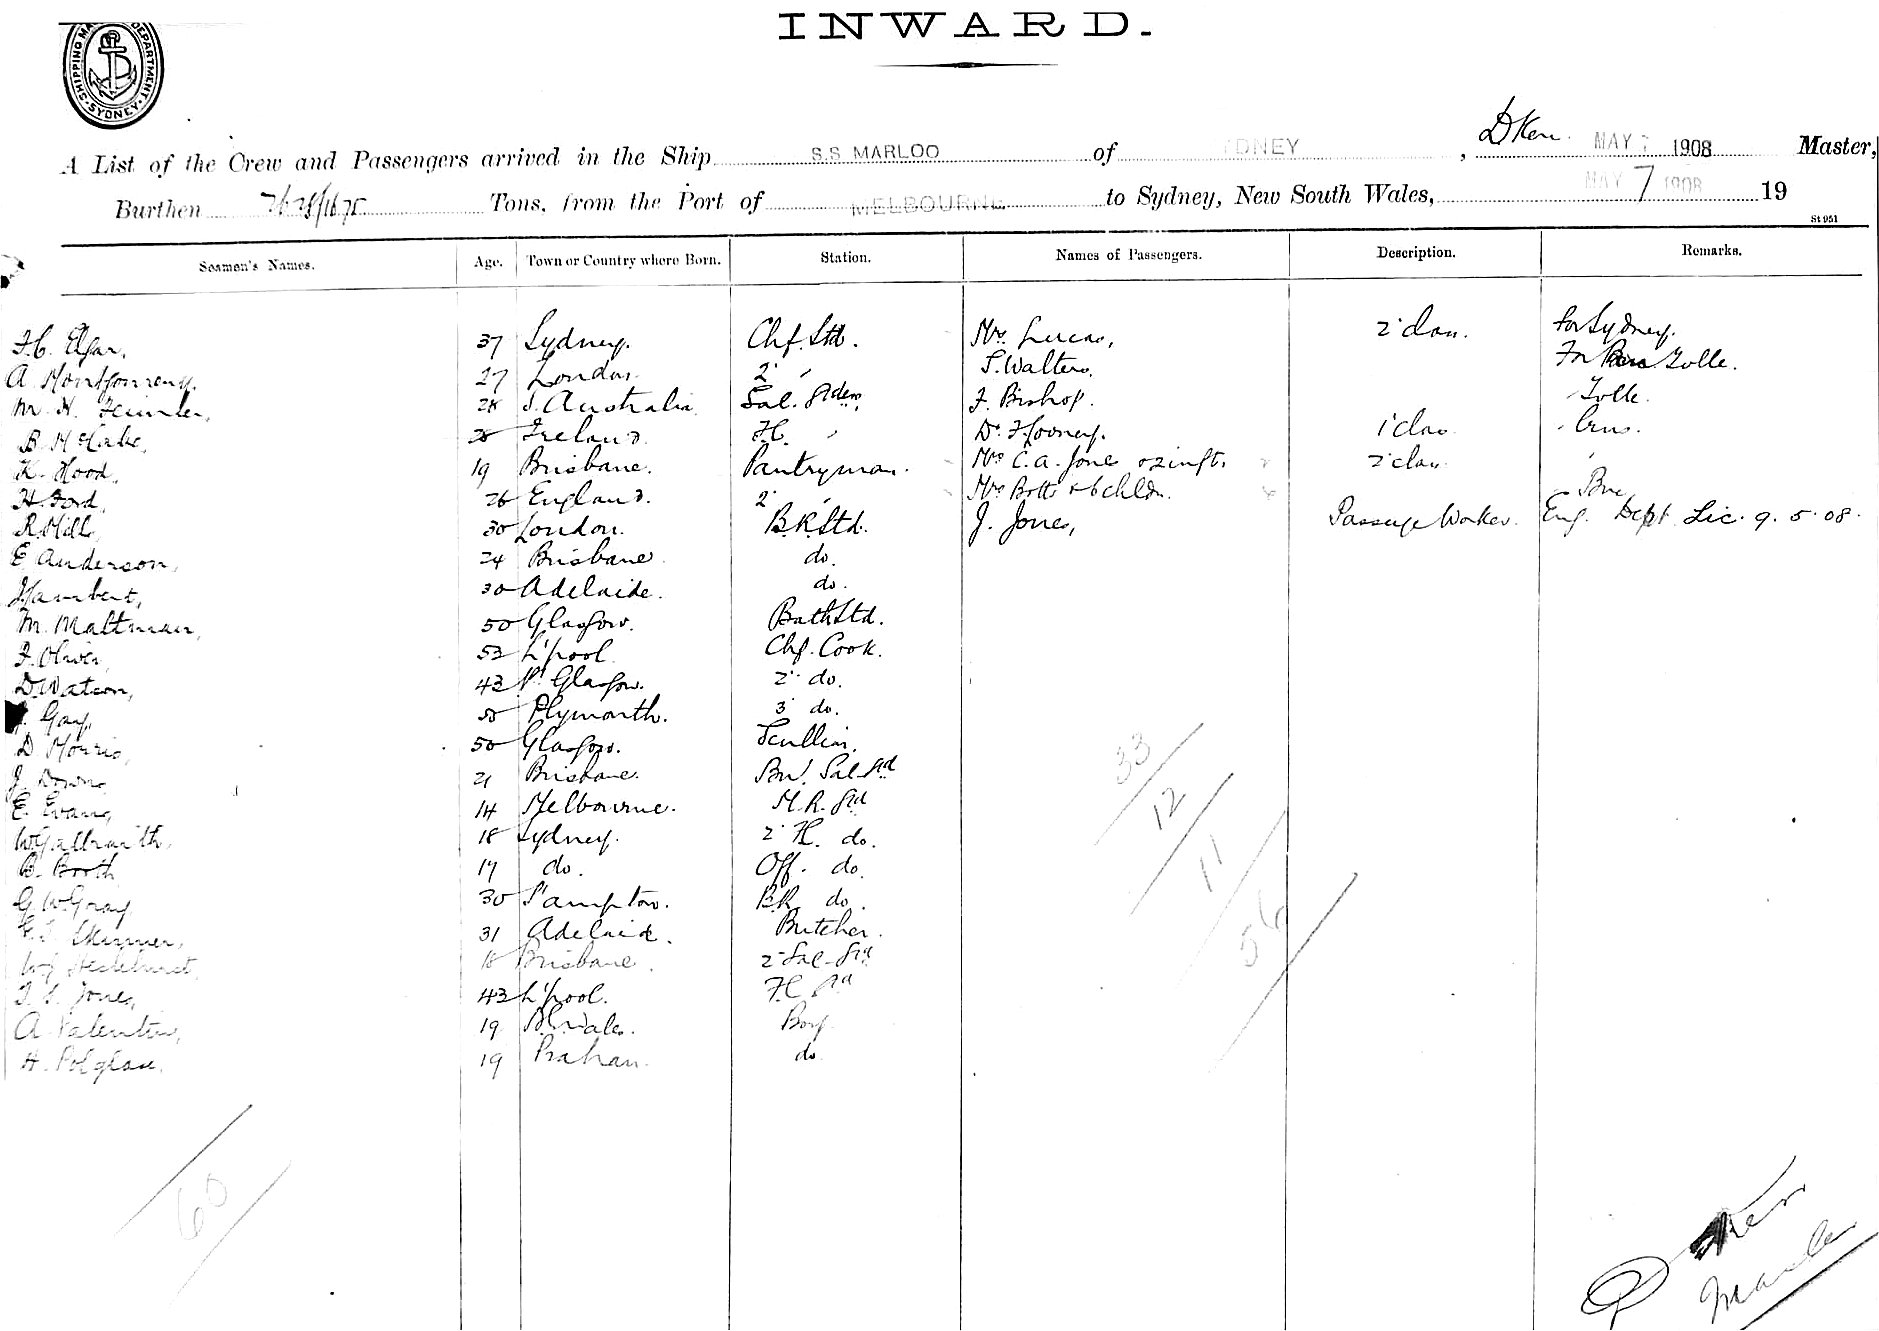 INWARD.
SHIPPING MA DEPARTMENT. SYDNEY
A List of the Crew and Passengers arrived in the Ship S.S MARLOO of DNEY, D Ken. MAY 7 1908 Master,
Burthen 2628/1675 Tons, from the Port of MELBOURNE to Sydney, New South Wales, MAY 7 1908 19
St 951
Seamen's Names. Age. Town or Country where Born. Station. Names of Passengers. Description. Remarks.
F.C. Elgar, 37 Sydney. Chf. Std. Mrs Lucas, 2' Class. for Sydney.
A Montgomery. 27 London. 2' " S. Walters. For Tolle.
M. H. 28 S. Australia Sal. Stdess, F. Bishop. Tolle.
B. McCabe, 28 Ireland. F.C. " Dr. Flooney. 1 Class
K. Hood, 19 Brisbane. Pantryman. Mrs C.A. Jones & 2 infts. 2' class
H. Ford, 26 England. 2' " Mrs Botts & 6 chldn. Bne
R. Mills, 30 London. B.R. Std. J. Jones, Passage Worker. Eng. Dept Lic. 9.5.08.
E Anderson, 24 Brisbane do.
J. Lambert, 30 Adelaide. do.
M. Maltman, 50 Glasgow. Bath Std.
F. Oliver, 53 L'pool Chf. Cook.
D. Watson, 43 Pt Glasgow. 2' do.
J. Gay, 50 Plymouth. 3' do.
D Morris, 50 Glasgow. Scullin.
J. Downs, 21 Brisbane. Bw. Sal Std
E. Evans, 14 Melbourne. M.R. Std
W. Galbraith, 18 Sydney. 2' F.C. do.
B. Booth 17 do. Off. do.
G. W. Gray 30 S'ampton. B.R. do.
Skinner, 31 Adelaide. Butcher.
W. 18 Brisbane. 2' Sal. Std
T. S. Jones, 43 L'pool. F.C. Std
A Valentin, 19 N.S. Wales. Boy.
H. Polglase. 19 Prahan. do
33
12
11
56
60
D Ken
Master